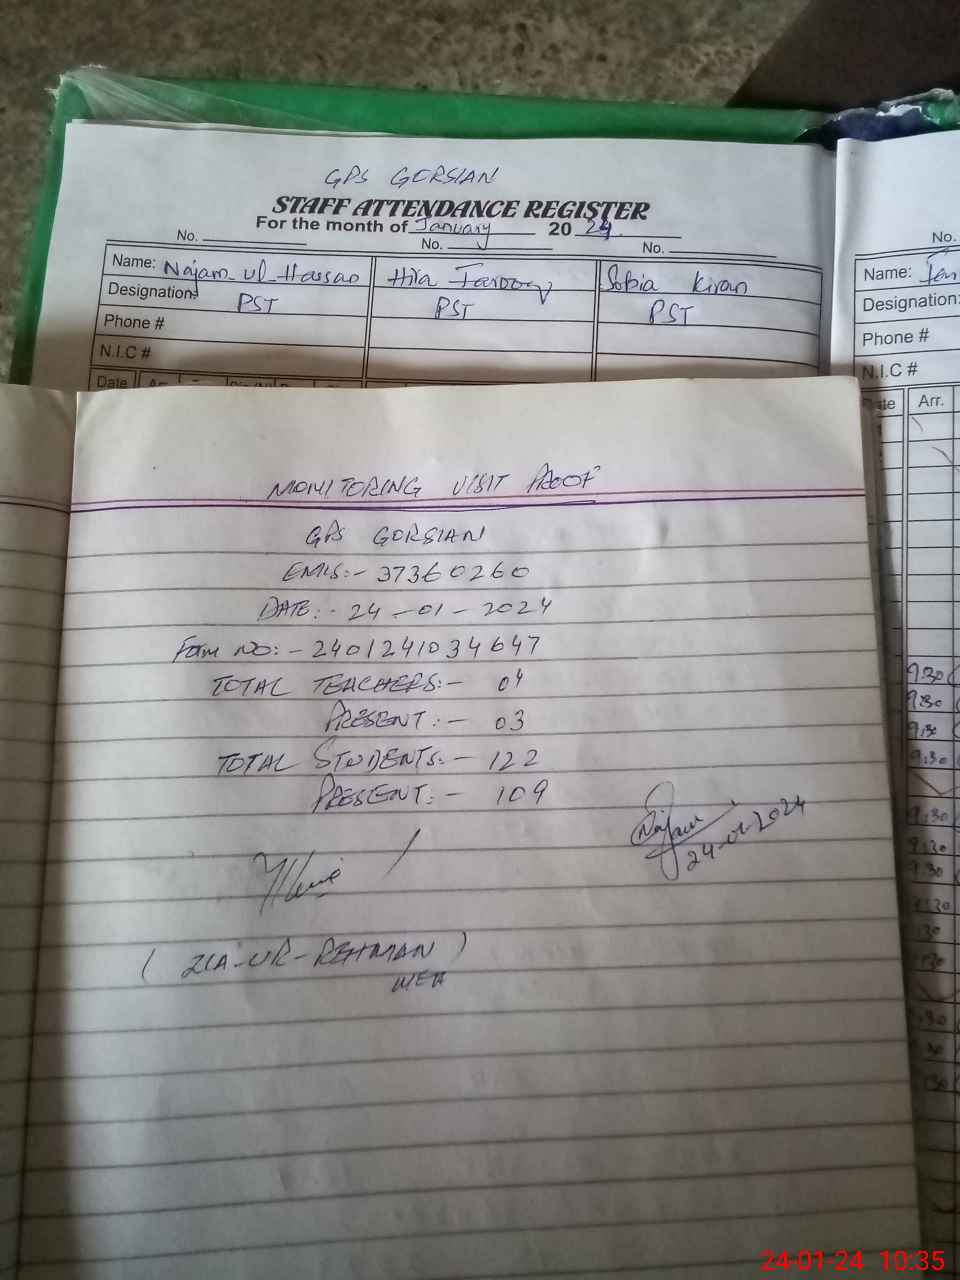 GPS GORSIAN
STAFF ATTENDANCE REGISTER
For the month of January 20 24
No. No. No.
Name: Najam-ul-Hassan Hira Farooq Sobia Kiran
Designation: PST PST PST
Phone #
N.I.C #
Date
No.
Name:
Designation:
Phone #
N.I.C #
Arr.
MONITORING VISIT PROOF
GPS GORSIAN
EMIS:- 37360260
DATE:- 24-01-2024
Form NO:- 2401241034647
TOTAL TEACHERS:- 04
PRESENT:- 03
TOTAL STUDENTS:- 122
PRESENT:- 109
Najam
24-01-2024
(ZIA-UR-REHMAN)
MEA
9:30
9:30
9:30
9:30
9:30
9:30
9:30
24-01-24 10:35